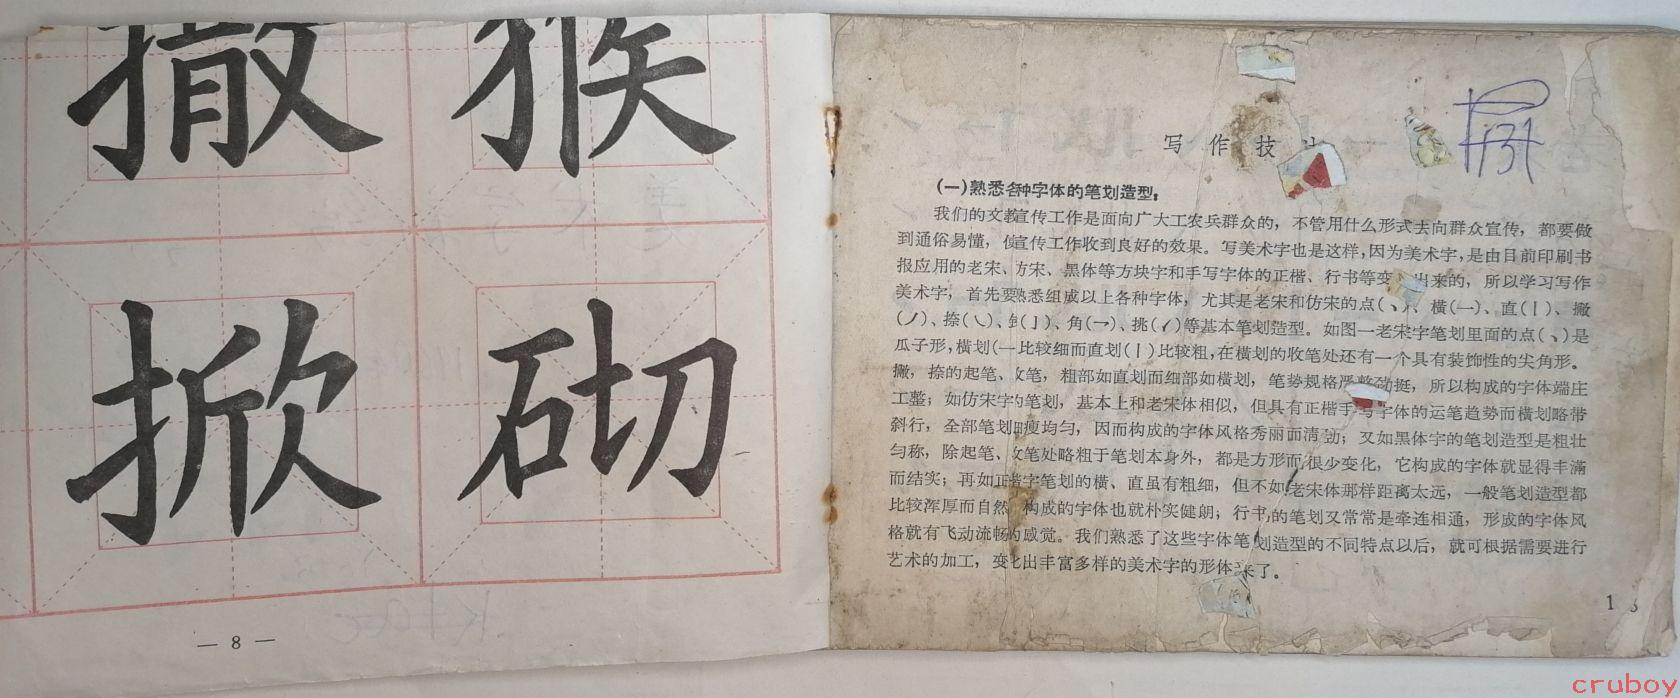 撒 猴
掀 砌
— 8 —
写作技
(一)熟悉各种字体的笔划造型：
我们的文教宣传工作是面向广大工农兵群众的，不管用什么形式去向群众宣传，都要做
到通俗易懂，使宣传工作收到良好的效果。写美术字也是这样，因为美术字，是由目前印刷书
报应用的老宋、方宋、黑体等方块字和手写字体的正楷、行书等变出来的，所以学习写作
美术字，首先要熟悉组成以上各种字体，尤其是老宋和仿宋的点(丶)、横(一)、直(丨)、撇
(丿)、捺(㇏)、钩(亅)、角(㇕)、挑(㇀)等基本笔划造型。如图一老宋字笔划里面的点(丶)是
瓜子形，横划(一比较细而直划(丨)比较粗，在横划的收笔处还有一个具有装饰性的尖角形。
撇，捺的起笔、收笔，粗部如直划而细部如横划，笔势规格严整劲挺，所以构成的字体端庄
工整；如仿宋字的笔划，基本上和老宋体相似，但具有正楷手写字体的运笔趋势而横划略带
斜行，全部笔划细瘦均匀，因而构成的字体风格秀丽而清劲；又如黑体字的笔划造型是粗壮
匀称，除起笔、收笔处略粗于笔划本身外，都是方形而很少变化，它构成的字体就显得丰满
而结实；再如正楷字笔划的横、直虽有粗细，但不如老宋体那样距离太远，一般笔划造型都
比较浑厚而自然，构成的字体也就朴实健朗；行书的笔划又常常是牵连相通，形成的字体风
格就有飞动流畅的感觉。我们熟悉了这些字体笔划造型的不同特点以后，就可根据需要进行
艺术的加工，变化出丰富多样的美术字的形体来了。
1
cruboy